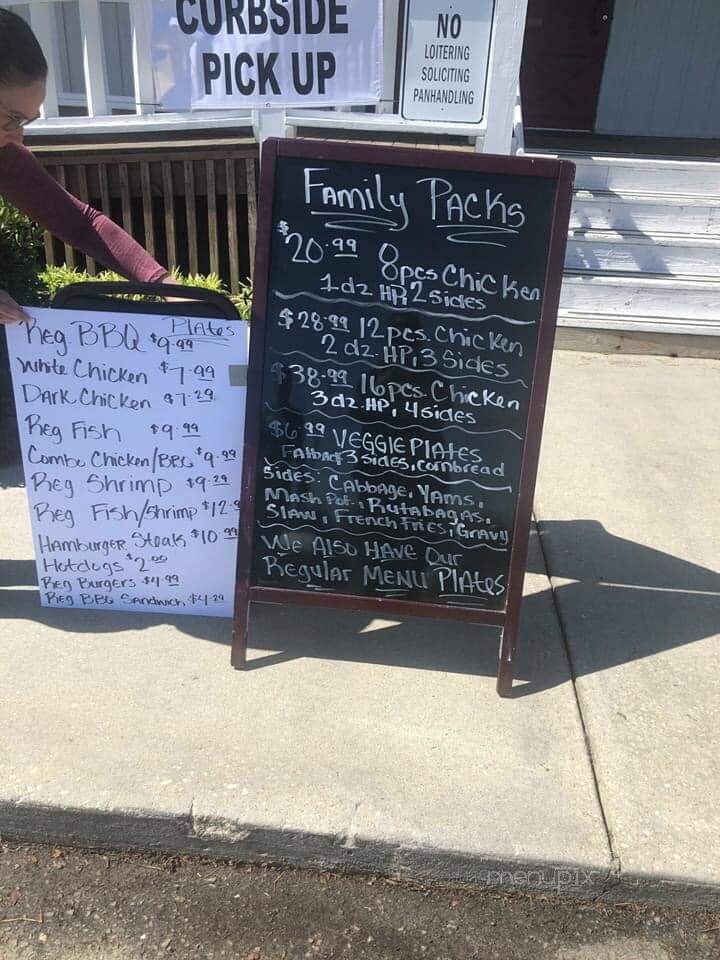 CURBSIDE
PICK UP
NO
LOITERING
SOLICITING
PANHANDLING
Family Packs
$20.99 8pcs Chicken
1 dz HP, 2 sides
$28.99 12 pcs. Chicken
2 dz. HP, 3 Sides
$38.99 16 pcs. Chicken
3 dz. HP, 4 sides
$6.99 VEGGIE PlAtES
Fatback, 3 sides, cornbread
Sides: CAbbage, YAms,
Mash Pot., Rutabagas,
Slaw, French Fries, Gravy
We Also Have Our
Regular Menu PlAtes
PlAtes
Reg. BBQ $9.99
White Chicken $7.99
Dark Chicken $7.29
Reg Fish $9.99
Combo Chicken/BBQ $9.99
Reg Shrimp $9.29
Reg Fish/Shrimp $12.9
Hamburger Steak $10.99
Hotdogs $2.00
Reg Burgers $4.99
Reg BBQ Sandwich $4.29
menupix